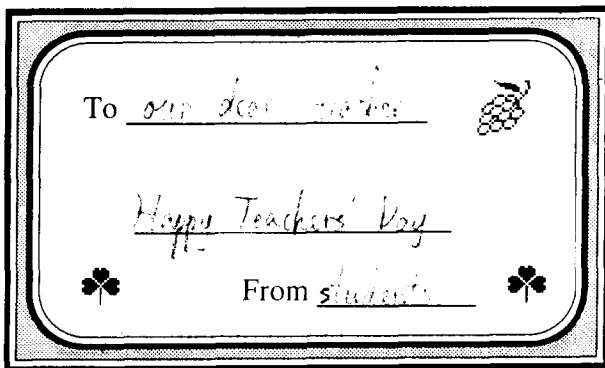 To our dear mother
Happy Teachers' Day
From students